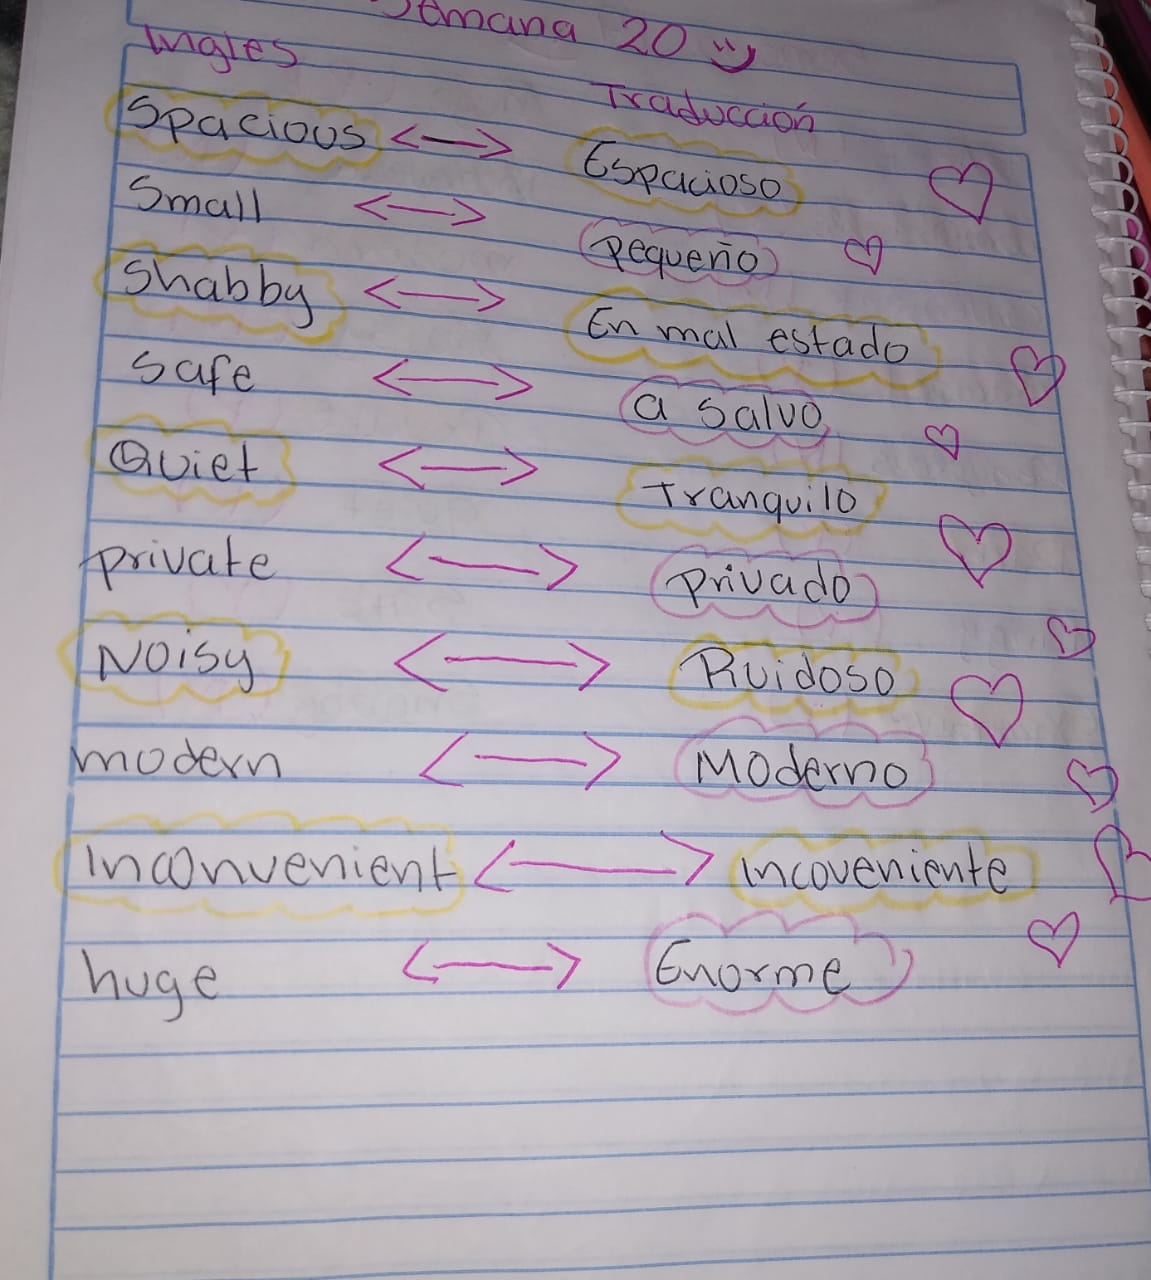 Semana 20
Ingles
Traducción
Spacious Espacioso
Small pequeño
Shabby En mal estado
Safe a salvo
Quiet Tranquilo
private privado
Noisy Ruidoso
modern Moderno
Inconvenient incoveniente
huge Enorme